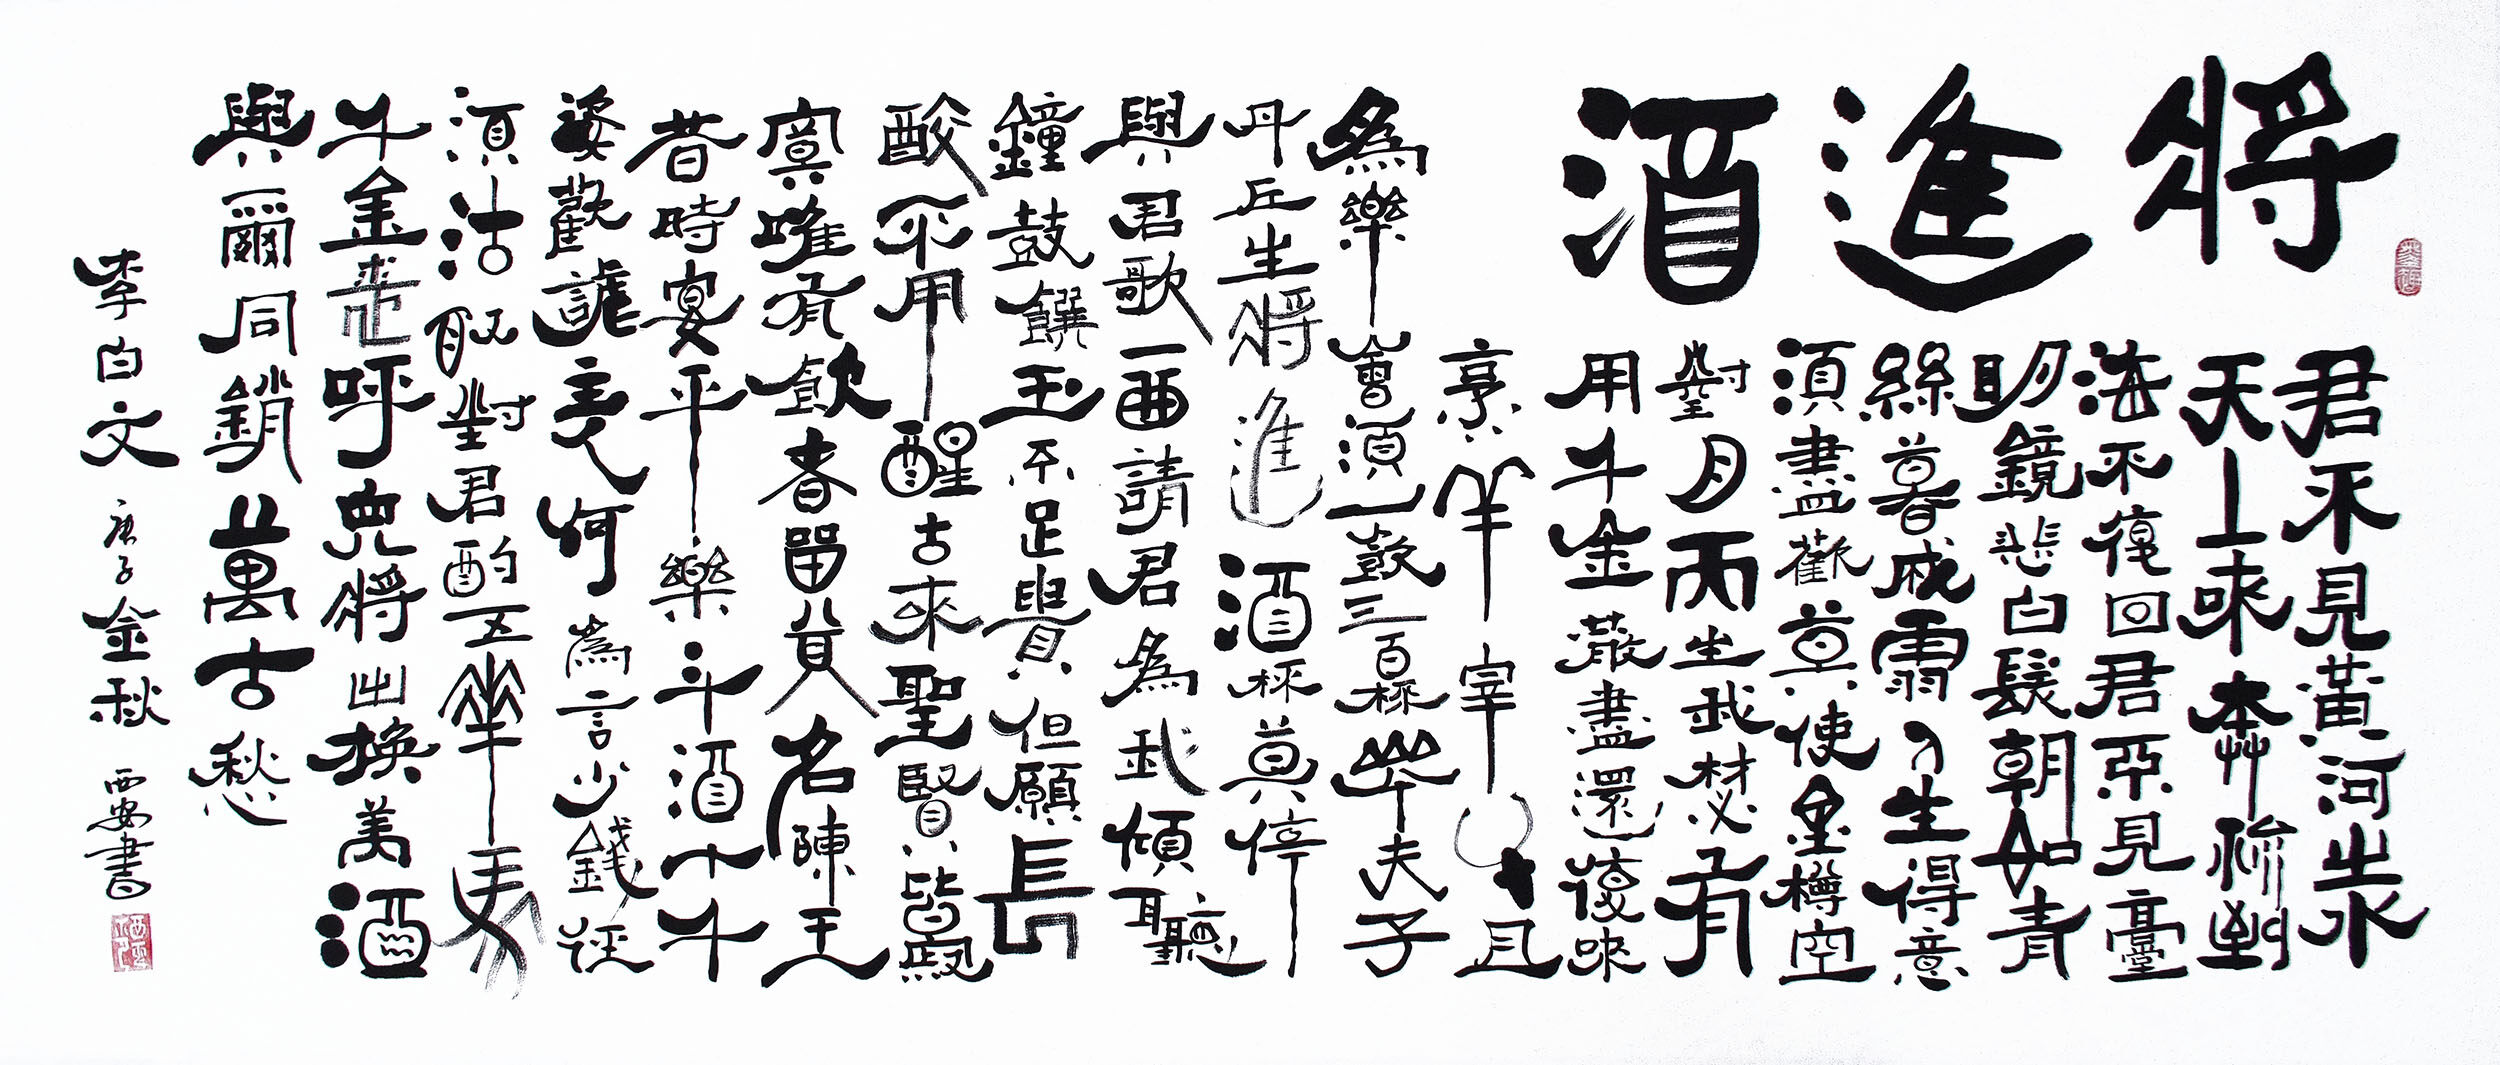 將進酒
君不見黃河之水
天上來奔流到
海不復回君不見臺
明鏡悲白髮朝如青
絲暮成雪人生得意
須盡歡莫使金樽空
對月天生我材必有
用千金散盡還復來
烹羊宰牛且
為樂會須一飲三百杯岑夫子
丹丘生將進酒杯莫停
與君歌一曲請君為我傾耳聽
鐘鼓饌玉不足貴但願長
醉不用醒古來聖賢皆寂
寞唯有飲者留其名陳王
昔時宴平樂斗酒十千
恣歡謔主人何為言少錢徑
須沽取對君酌五華馬
千金裘呼兒將出換美酒
與爾同銷萬古愁
李白文 庚子金秋 西安書